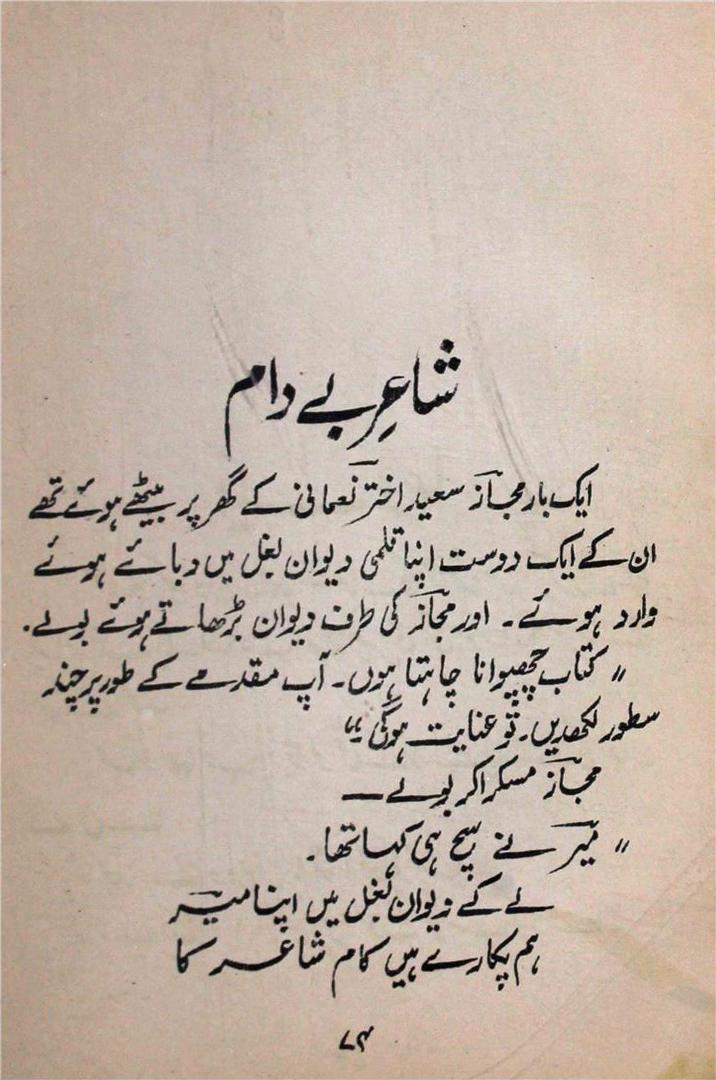 شاعرِ بے دام
ایک بار مجازؔ سعید اختر نعمانی کے گھر پر بیٹھے ہوئے تھے
ان کے ایک دوست اپنا قلمی دیوان بغل میں دبائے ہوئے
وارد ہوئے۔ اور مجازؔ کی طرف دیوان بڑھاتے ہوئے بولے۔
"کتاب چھپوانا چاہتا ہوں۔ آپ مقدمے کے طور پر چند
سطور لکھدیں۔ تو عنایت ہوگی۔"
مجازؔ مسکرا کر بولے —
"میرؔ نے سچ ہی کہا تھا۔
لے کے دیوان بغل میں اپنا میرؔ
ہم پکارے ہیں کام شاعر کا